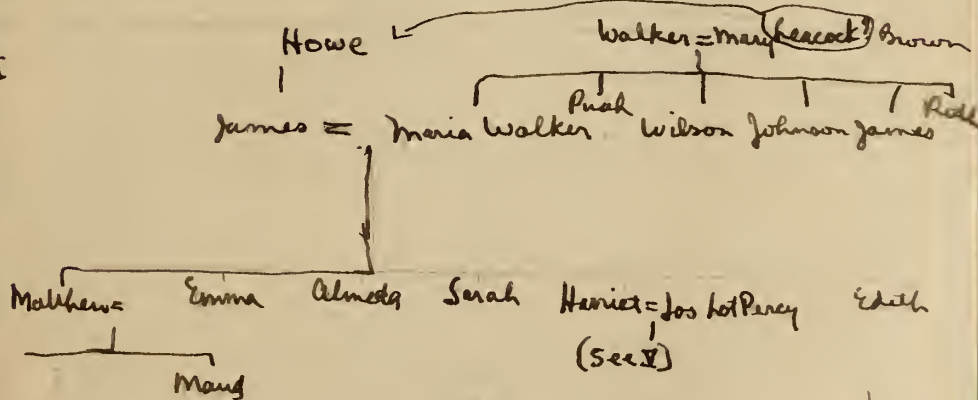 Howe Walker = Mary Peacock? Brown
Puah Ruth
James = Maria Walker Wilson Johnson James
Matthew= Emma Almeda Sarah Harriet = Jos Lot Percy Edith
(See V)
Maud